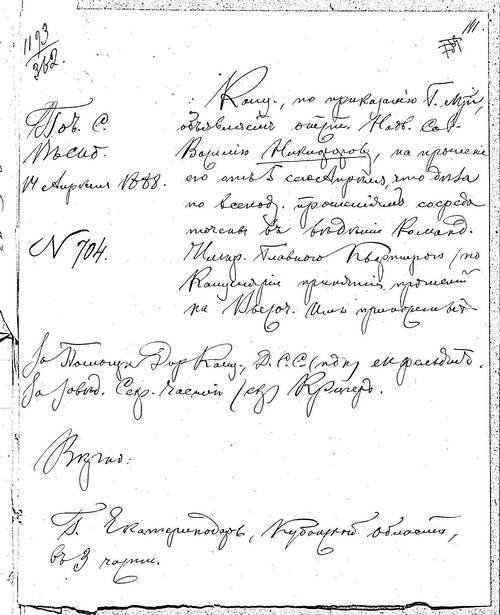 1193
362.
111.
Канц., по приказанію Г. Мин,
объявляетъ отст. Надв. Сов.
Василію Никифорову, на прошеніе
его отъ 5 сего Апрѣля, что дѣла
по всепод. прошеніямъ сосредо
точены въ вѣдѣніи Команд.
Импер. Главною Квартирою (по
Канцеляріи принятія прошеній
на Высоч. Имя приносимыхъ
14 Апрѣля 1888.
N 704.
За Помощн. Дир. Канц., Д. С. С. (подп)
За завѣд. Секр. Частію (скр)
Г. Екатеринодаръ, Кубанской области,
въ 3 части.